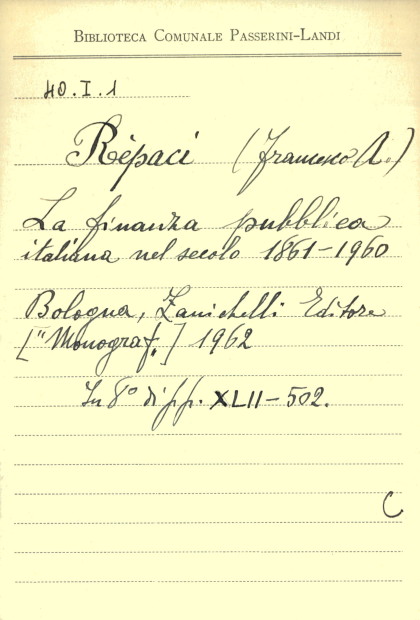 BIBLIOTECA COMUNALE PASSERINI-LANDI
40.I.1
Rèpaci (Francesco A.)
La finanza pubblica
italiana nel secolo 1861-1960
Bologna, Zanichelli Editore
["Monograf.] 1962
In 8° di pp. XLII-502.
C